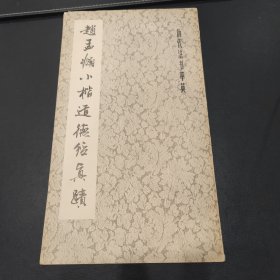 歷代法書萃英
趙孟頫小楷道德經真蹟